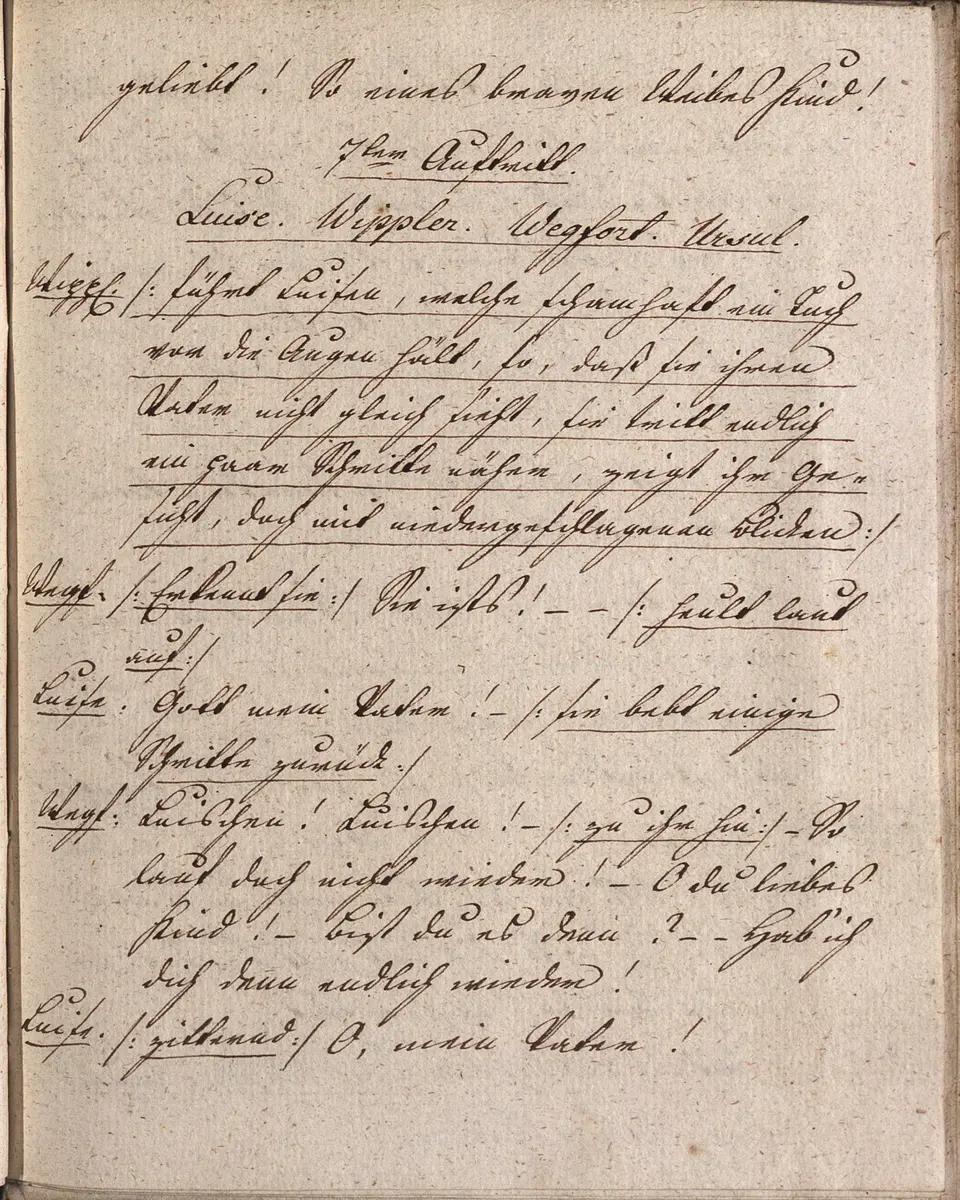 geliebt! So eines braven Weibes Kind!
7ter Auftritt.
Luise. Wippler. Wegfort. Ursul.
Wippl. /: führt Luisen, welche schamhaft ein Tuch
vor die Augen hält, so, daß sie ihren
Vater nicht gleich sieht, sie tritt endlich
ein paar Schritte näher, zeigt ihr Ge-
sicht, doch mit niedergeschlagenen Blicken:/
Wegf. /: Erkennt sie:/ Sie ists! – – /: heult laut
auf:/
Luise. Gott mein Vater! – /: sie bebt einige
Schritte zurück:/
Wegf: Luischen! Luischen! – /: zu ihr hin:/ – So
lauf doch nicht wieder! – O du liebes
Kind! – Bist du es denn? – – Hab' ich
dich denn endlich wieder!
Luise. /: zitternd:/ O, mein Vater!